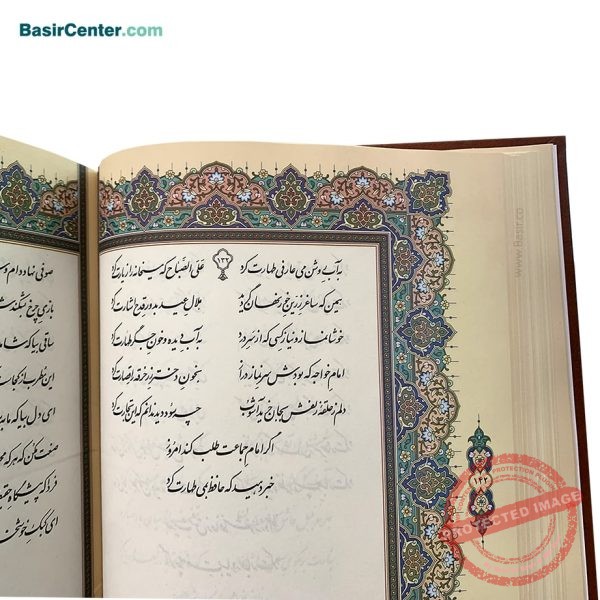 BasirCenter.com
۱۳۲
به آب روشن می عارفی طهارت کرد
علی الصباح که میخانه را زیارت کرد
همین که ساغر زرین خور نهان گردید
هلال عید به دور قدح اشارت کرد
خوشا نماز و نیاز کسی که از سر درد
به آب دیده و خون جگر طهارت کرد
امام خواجه که بودش سر نماز دراز
به خون دختر رز خرقه را قصارت کرد
دلم ز حلقه زلفش به جان خرید آشوب
چه سود دید ندانم که این تجارت کرد
اگر امام جماعت طلب کند امروز
خبر دهید که حافظ به می طهارت کرد
۱۳۲
صوفی نهاد دام و
بازی چرخ بشکند
ساقی بیا که شا
این مطرب از کجاست
ای دل بیا که ما
صنعت مکن که هر که
فردا که پیشگاه
ای کبک خوش
www.Basir.co
PROTECTED IMAGE